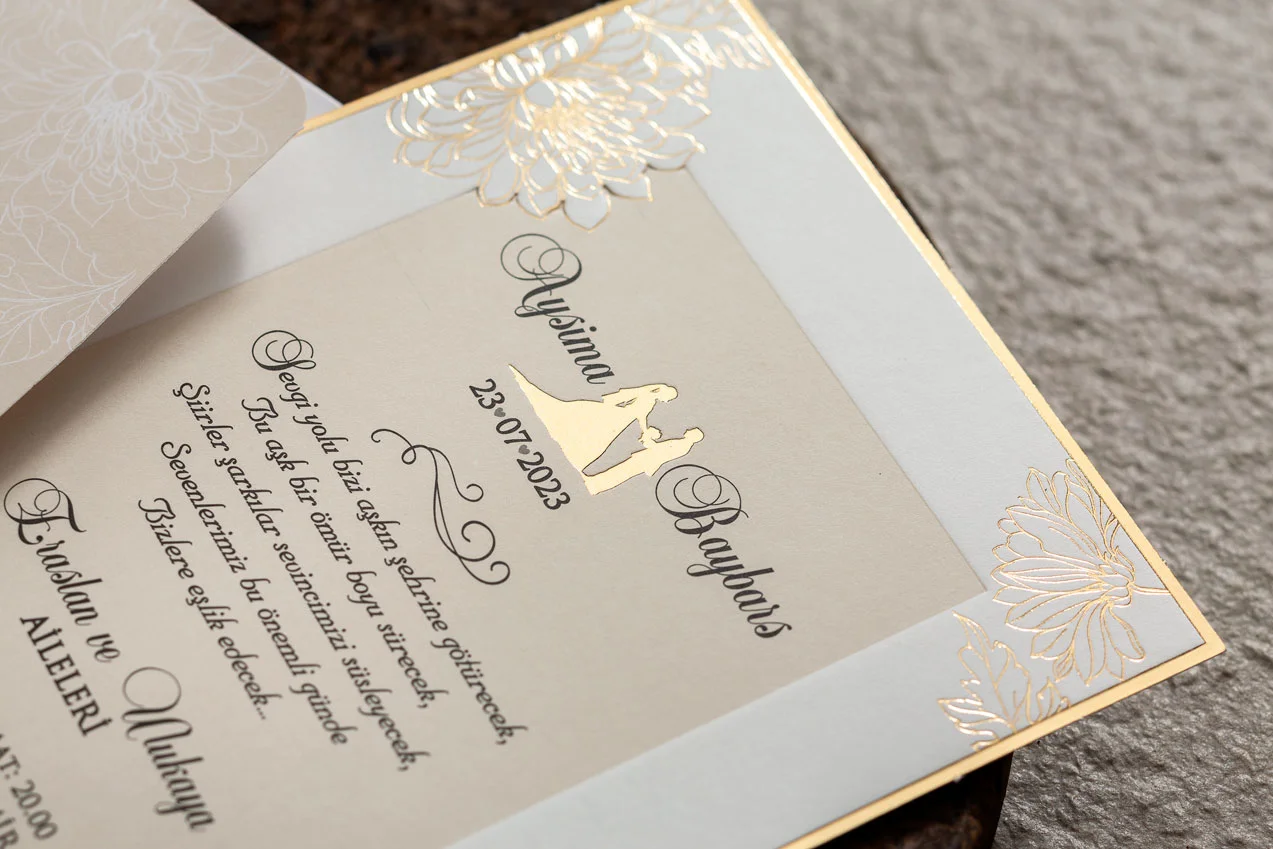 Aysima
Baybars
23♥07♥2023
Sevgi yolu bizi aşkın şehrine götürecek,
Bu aşk bir ömür boyu sürecek,
Şiirler şarkılar sevincimizi süsleyecek,
Sevenlerimiz bu önemli günde
Bizlere eşlik edecek...
Eraslan ve Mukaya
AİLELERİ
20.00